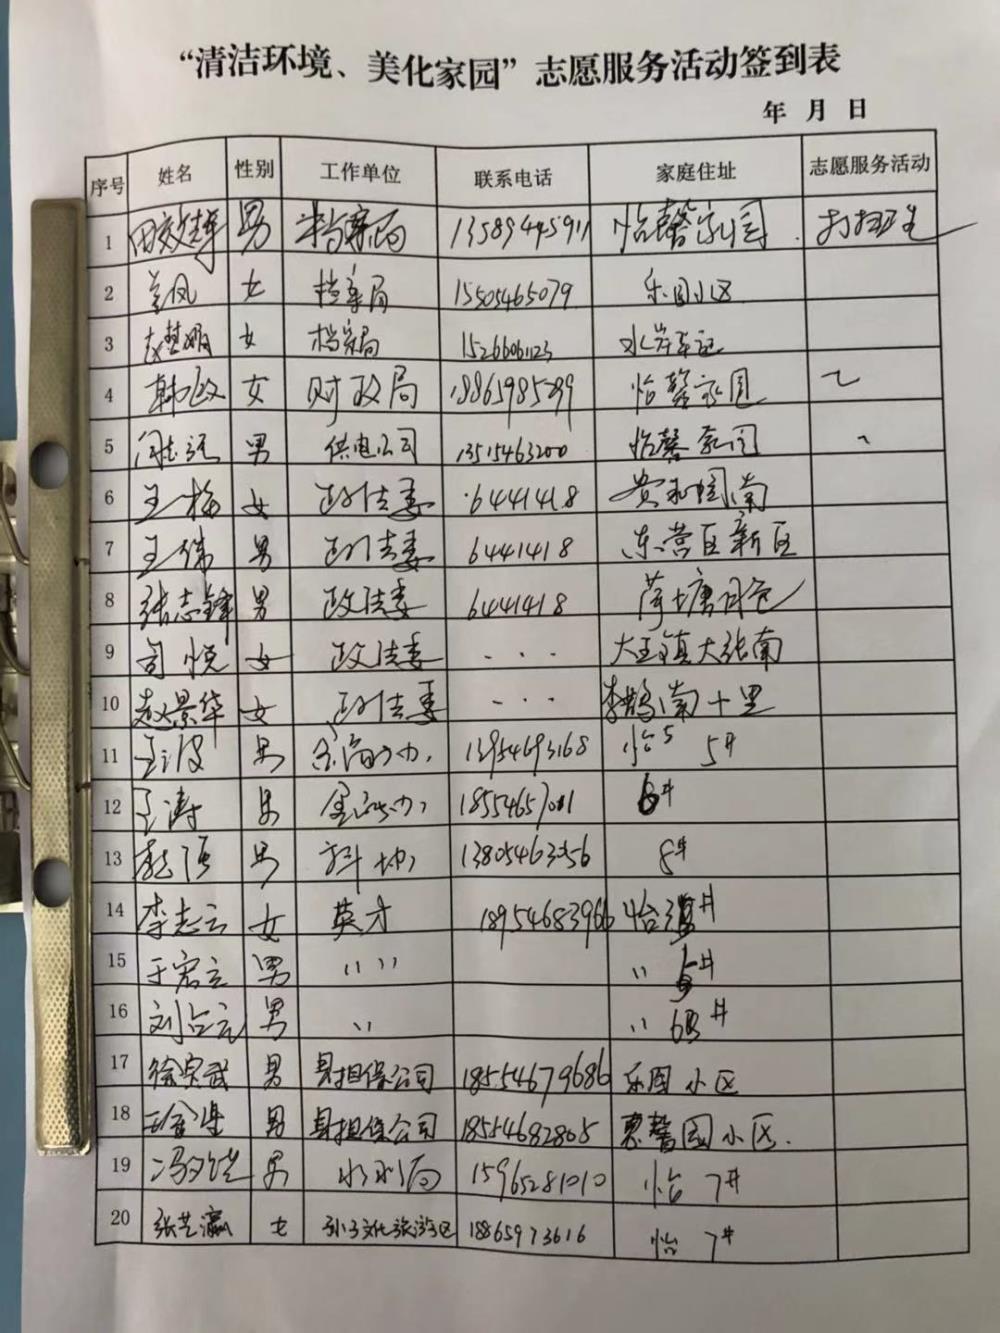 “清洁环境、美化家园”志愿服务活动签到表
年 月 日
序号 姓名 性别 工作单位 联系电话 家庭住址 志愿服务活动
1 男 档案局 13589445911 怡馨家园 打扫卫生
2 兰凤 女 档案局 15505465079 乐园小区
3 女 档案局 15266061123
4 韩政 女 财政局 怡馨家园
5 闫志远 男 供电公司 13515463200 怡馨家园
6 王梅 女 政法委 6441418 贵和园南
7 王伟 男 政法委 6441418 东营区新区
8 张志锋 男 政法委 6441418 荷塘月色
9 司悦 女 政法委 ... 大王镇大张南
10 赵景华 女 政法委 ... 李鹊南十里
11 王波 男 13954693168 怡 5#
12 王涛 男 6#
13 男 8#
14 李志云 女 英才 18954683966 怡
15 于宏立 男 〃〃 〃
16 刘占元 男 〃 〃
17 徐宾武 男 担保公司 18554679686 乐园小区
18 男 担保公司 18554682805 惠馨园小区.
19 男 水利局 15965281010 怡 7#
20 张艺瀛 女 孙子文化旅游区 18865973616 怡 7#